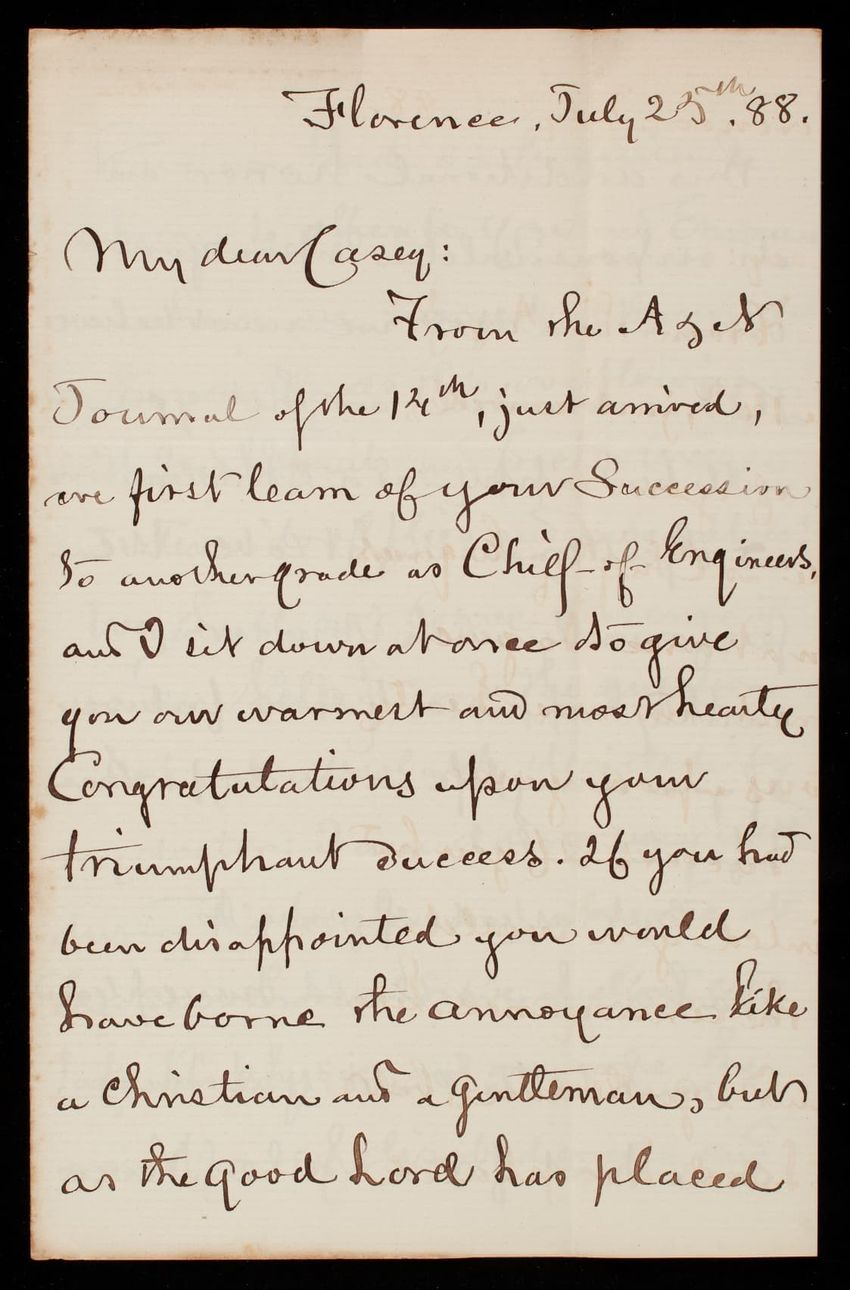 Florence, July 25th. 88.
My dear Casey:
From the A & N
Journal of the 14th, just arrived,
we first learn of your Succession
to another grade as Chief of Engineers,
and I sit down at once to give
you our warmest and most hearty
Congratulations upon your
triumphant success. If you had
been disappointed you would
have borne the annoyance like
a Christian and a gentleman, but
as the good Lord has placed